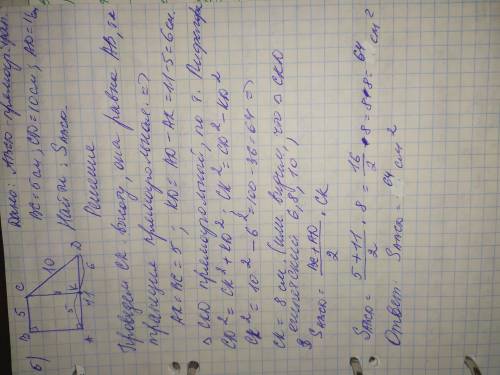 б) B 5 C
10
5
A 11 K 6 D
Дано: ABCD - прямоуг. трап.
BC = 5 см, CD = 10 см, AD = 11
Найти: SABCD.
Решение
Проведем CK - высоту, она равна AB,
трапеция прямоугольная. =>
AK = BC = 5; KD = AD - AK = 11-5 = 6 см.
△ CKD прямоугольный, по т. Пифагора
CD² = CK² + KD²; CK² = CD² - KD²
CK² = 10² - 6² = 100 - 36 = 64 =>
CK = 8 см (или видим, что △ CKD
египетский 6, 8, 10),
SABCD = BC + AD / 2 · CK
SABCD = 5 + 11 / 2 · 8 = 16 / 2 · 8 = 8·8 = 64 см²
Ответ SABCD = 64 см²